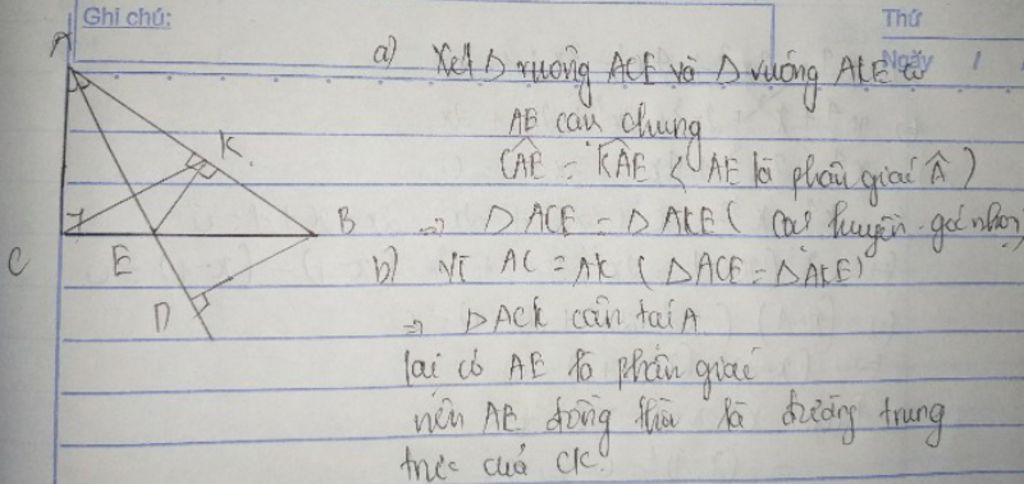 Ghi chú:
Thứ
Ngày / /
A
K
C
E
B
D
a) Xét Δ vuông ACE và Δ vuông AKE có
AE cạnh chung
CÂE = KÂE ( AE là phân giác Â )
=> Δ ACE = Δ AKE ( cạnh huyền - góc nhọn )
b) Vì AC = AK ( ΔACE = ΔAKE )
=> ΔACK cân tại A
lại có AE là phân giác
nên AE đồng thời là đường trung
trực của CK.